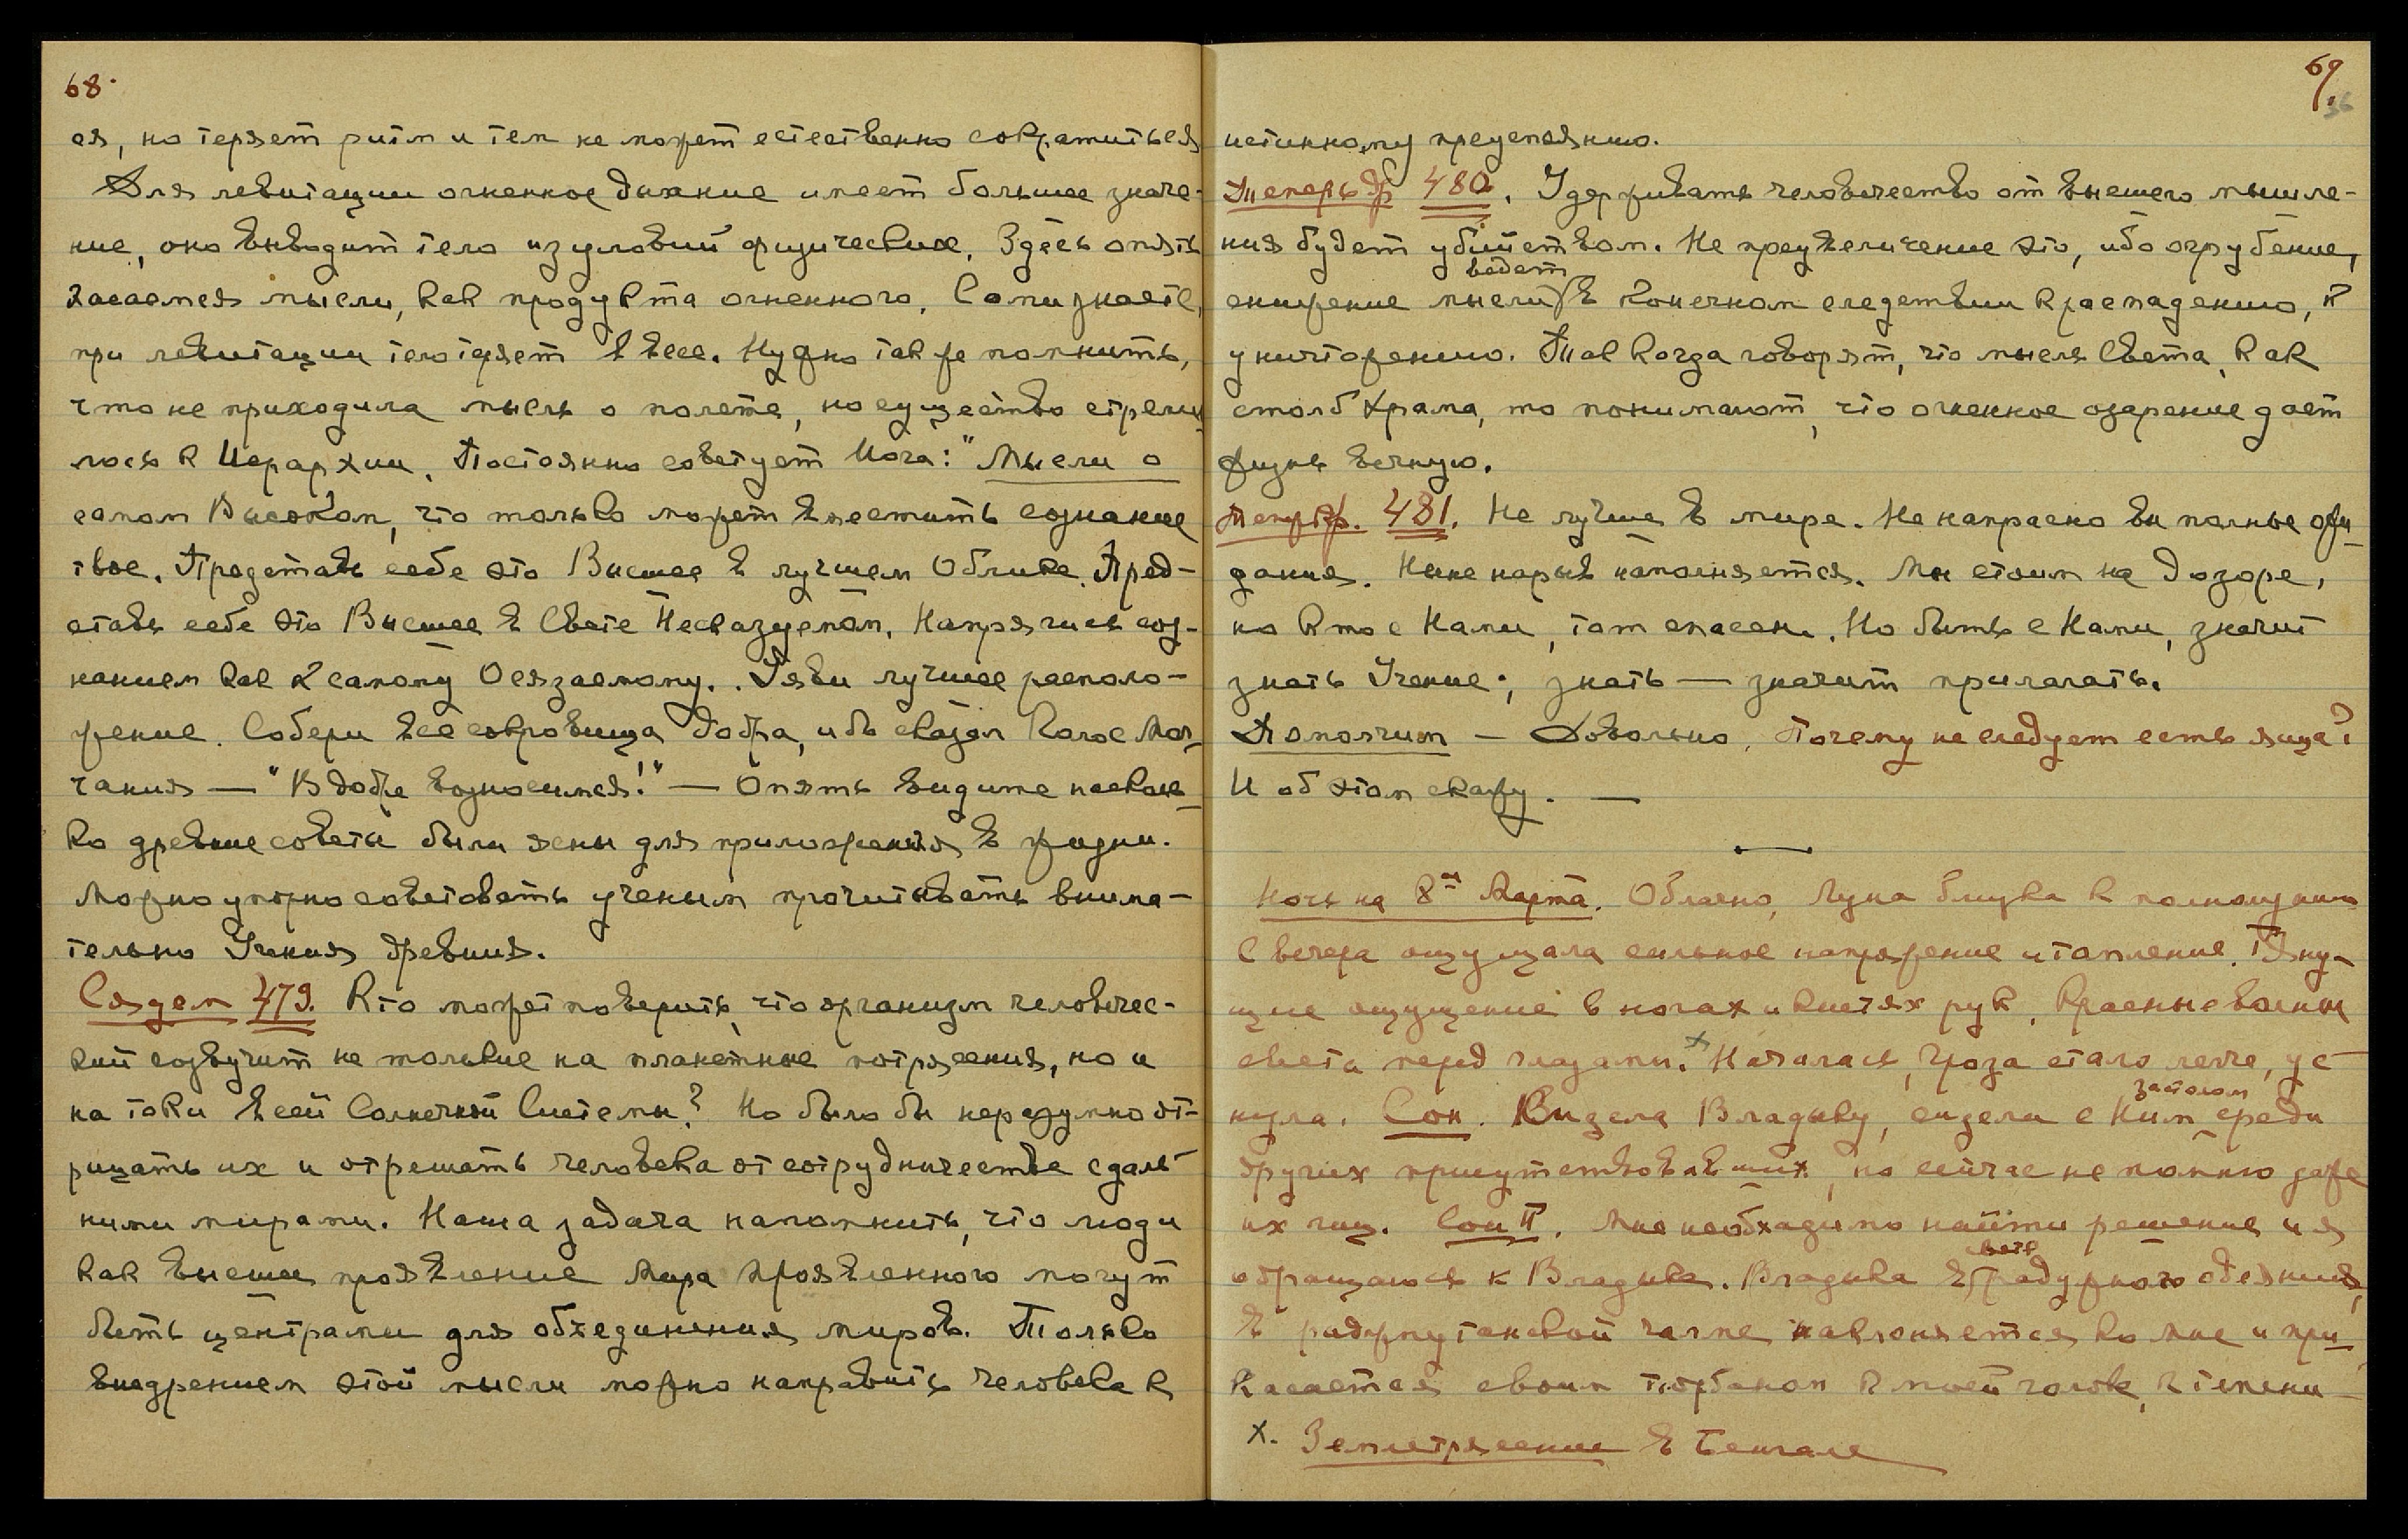 68.
ся, но теряет ритм и тем не может естественно сократиться
Для левитации огненное дыхание имеет большее значе-
ние, оно выводит тело из условий физических. Здесь опять
касаемся мысли, как продукта огненного. Сами знаете,
при левитации тело теряет в весе. Нужно также помнить,
что не приходила мысль о полете, но существо стреми
лось к Иерархии. Постоянно советует Йога: "Мысли о
самом Высоком, что только может вместить сознание
твое. Представь себе это Высшее в лучшем Облике. Пред-
ставь себе это Высшее в Свете Несказуемом. Напрягись соз-
нанием как к самому Осязаемому. Уяви лучшее располо-
жение. Собери все сокровища добра, иб сказал Голос Мол-
чания — "В добре возносимся!" — Опять видите насколь-
ко древние советы были ясны для приложения в жизни.
Можно упорно советовать ученым прочитывать внима-
тельно Учения древния.
Сядем 479. Кто может поверить, что организм человечес-
кий созвучит не только на планетные потрясения, но и
на токи всей Солнечной Системы? Но было бы неразумно от-
рицать их и отрешать человека от сотрудничества с даль-
ними мирами. Наша задача напомнить, что люди
как высшее проявление Мира Проявленного могут
быть центрами для объединения миров. Только
внедрением этой мысли можно направить человека к
69
36
истинному преуспеянию.
480. Удерживать человечество от высшего мышле-
ния будет убийством. Не преувеличение это, ибо огрубение,
ведет
снижение мысли в конечном следствии к распадению, к
уничтожению. Так когда говорят, что мысль Света, как
столб Храма, то понимают, что огненное озарение дает
жизнь вечную.
481. Не лучше в мире. Не напрасно вы полны ожи-
дания. Ныне нарыв наполняется. Мы стоим на дозоре,
но кто с Нами, тот спасен. Но быть с Нами, значит
знать Учение; знать — значит прилагать.
Помолчим — Довольно. Почему не следует есть яица?
И об этом скажу. —
Ночь на 8ое Марта. Облачно, Луна близка к полнолунию
С вечера ощущала сильное напряжение и томление. Тяну-
щие ощущение в ногах и кистях рук. Красные волны
света перед глазами. x Началась гроза стало легче, ус-
нула. Сон. Видела Владыку, сидели с Ним
за столом
среди
других присутствовавших, но сейчас не помню даже
их лиц. Сон II. Мне необходимо найти решение и я
обращаюсь к Владыке. Владыка в свете радужного одеяния,
в раджпутанской чалме наклоняется ко мне и при-
касается своим тюрбаном к моей голове, к темени —
x. Землетрясение в Бенгале